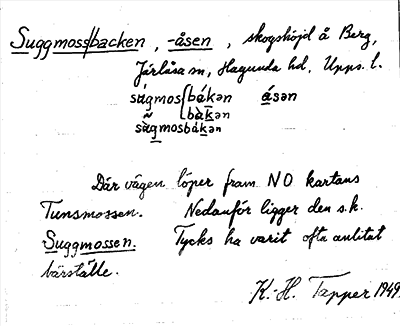 Suggmoss/backen, -åsen, skogshöjd å Berg,
Järlåsa sn, Hagunda hd, Upps. l.
súgmosbákən ásən
bàkən
sùgmosbákən
Där vägen löper fram NO kartans
Tunsmossen. Nedanför ligger den s.k.
Suggmossen. Tycks ha varit ofta anlitat
bärställe.
K.-H. Tapper 1949.